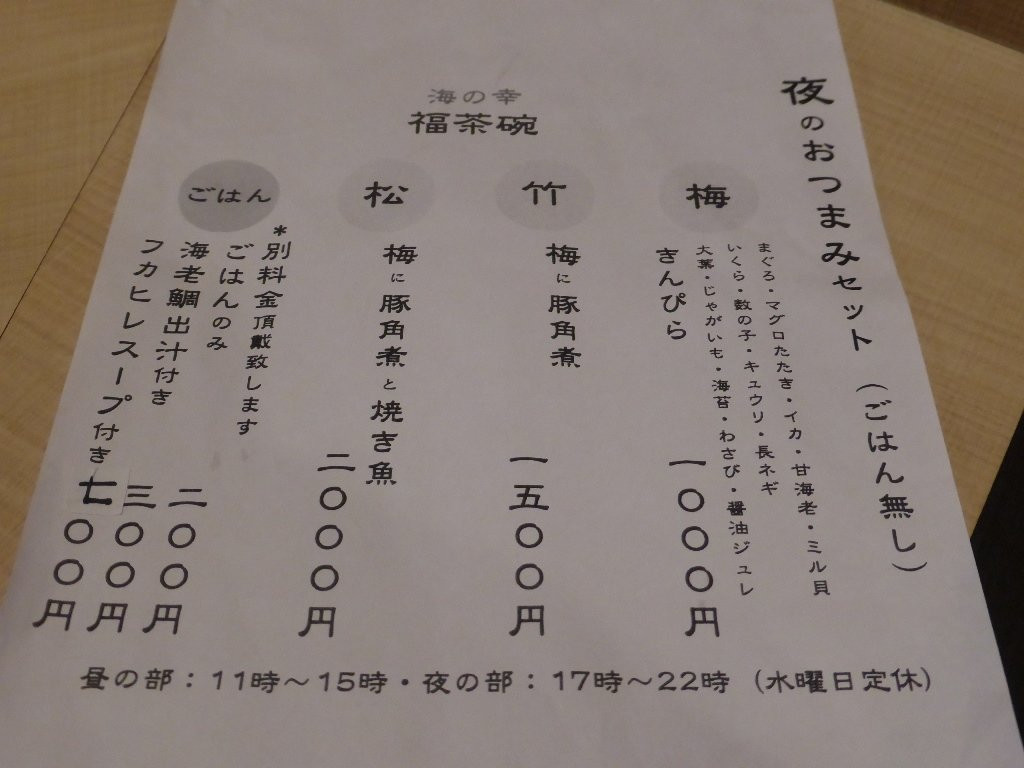 夜のおつまみセット（ごはん無し）
海の幸
福茶碗
梅
まぐろ・マグロたたき・イカ・甘海老・ミル貝
いくら・数の子・キュウリ・長ネギ
大葉・じゃがいも・海苔・わさび・醤油ジュレ
きんぴら
一〇〇〇円
竹
梅に豚角煮
一五〇〇円
松
梅に豚角煮と焼き魚
二〇〇〇円
ごはん
*別料金頂戴致します
ごはんのみ
二〇〇円
海老鯛出汁付き
三〇〇円
フカヒレスープ付き
七〇〇円
昼の部：11時～15時・夜の部：17時～22時（水曜日定休）